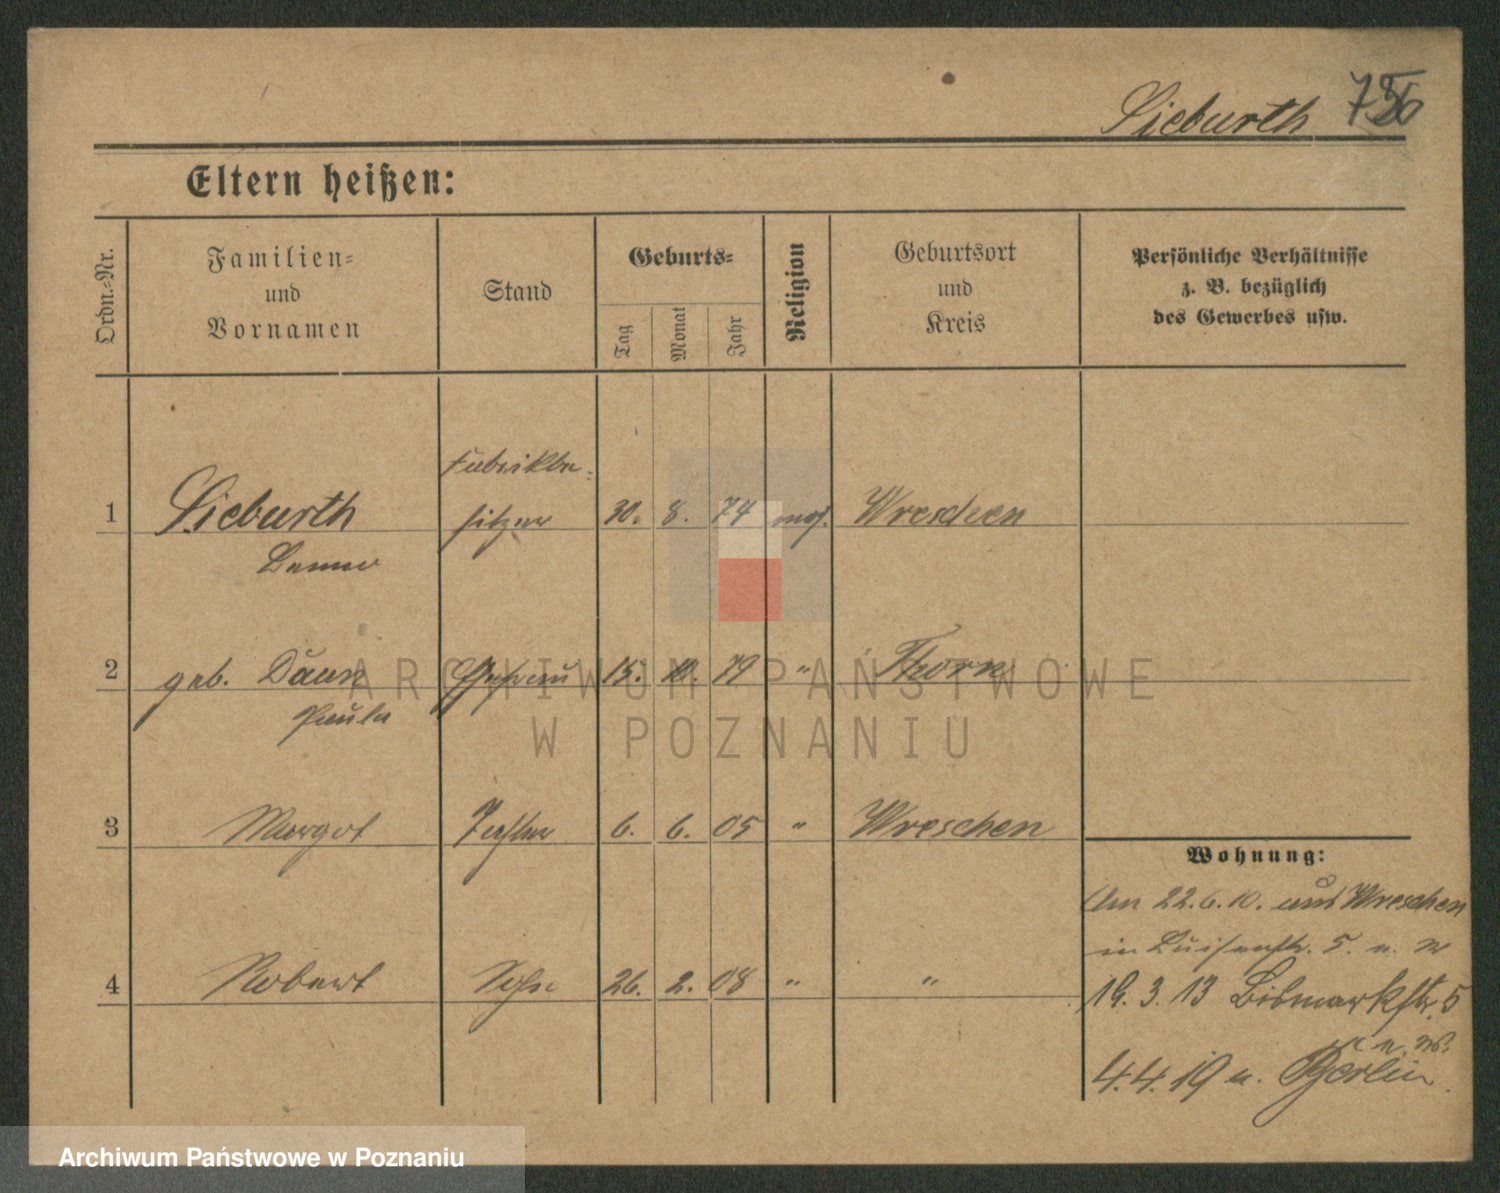 Sieburth
Eltern heißen:
Ordn.-Nr.
Familien-
und
Vornamen
Stand
Geburts-
Tag
Monat
Jahr
Religion
Geburtsort
und
Kreis
Persönliche Verhältnisse
z. B. bezüglich
des Gewerbes usw.
Fabrikbe-
1 Sieburth sitzer 30. 8. 74 mos. Wreschen
Benno
2 geb. Daun Ehefrau 15. 10. 79 " Thorn
Paula
3 Margot Tochter 6. 6. 05 " Wreschen
4 Robert Sohn 26. 2. 08 " "
Wohnung:
Am 22.6.10. aus Wreschen
in Luisenstr. 5. u. w
19.3.13 Bismarkstr. 5
u. w.
4.4.19 n. Berlin
ARCHIWUM PAŃSTWOWE
W POZNANIU
Archiwum Państwowe w Poznaniu